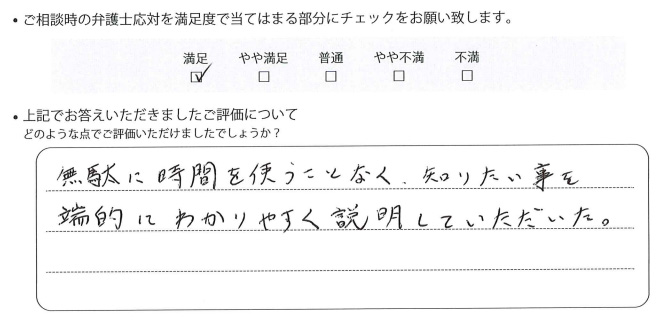 • ご相談時の弁護士応対を満足度で当てはまる部分にチェックをお願い致します。
満足 やや満足 普通 やや不満 不満
☑ □ □ □ □
• 上記でお答えいただきましたご評価について
どのような点でご評価いただけましたでしょうか？
無駄に時間を使うことなく、知りたい事を
端的にわかりやすく説明していただいた。